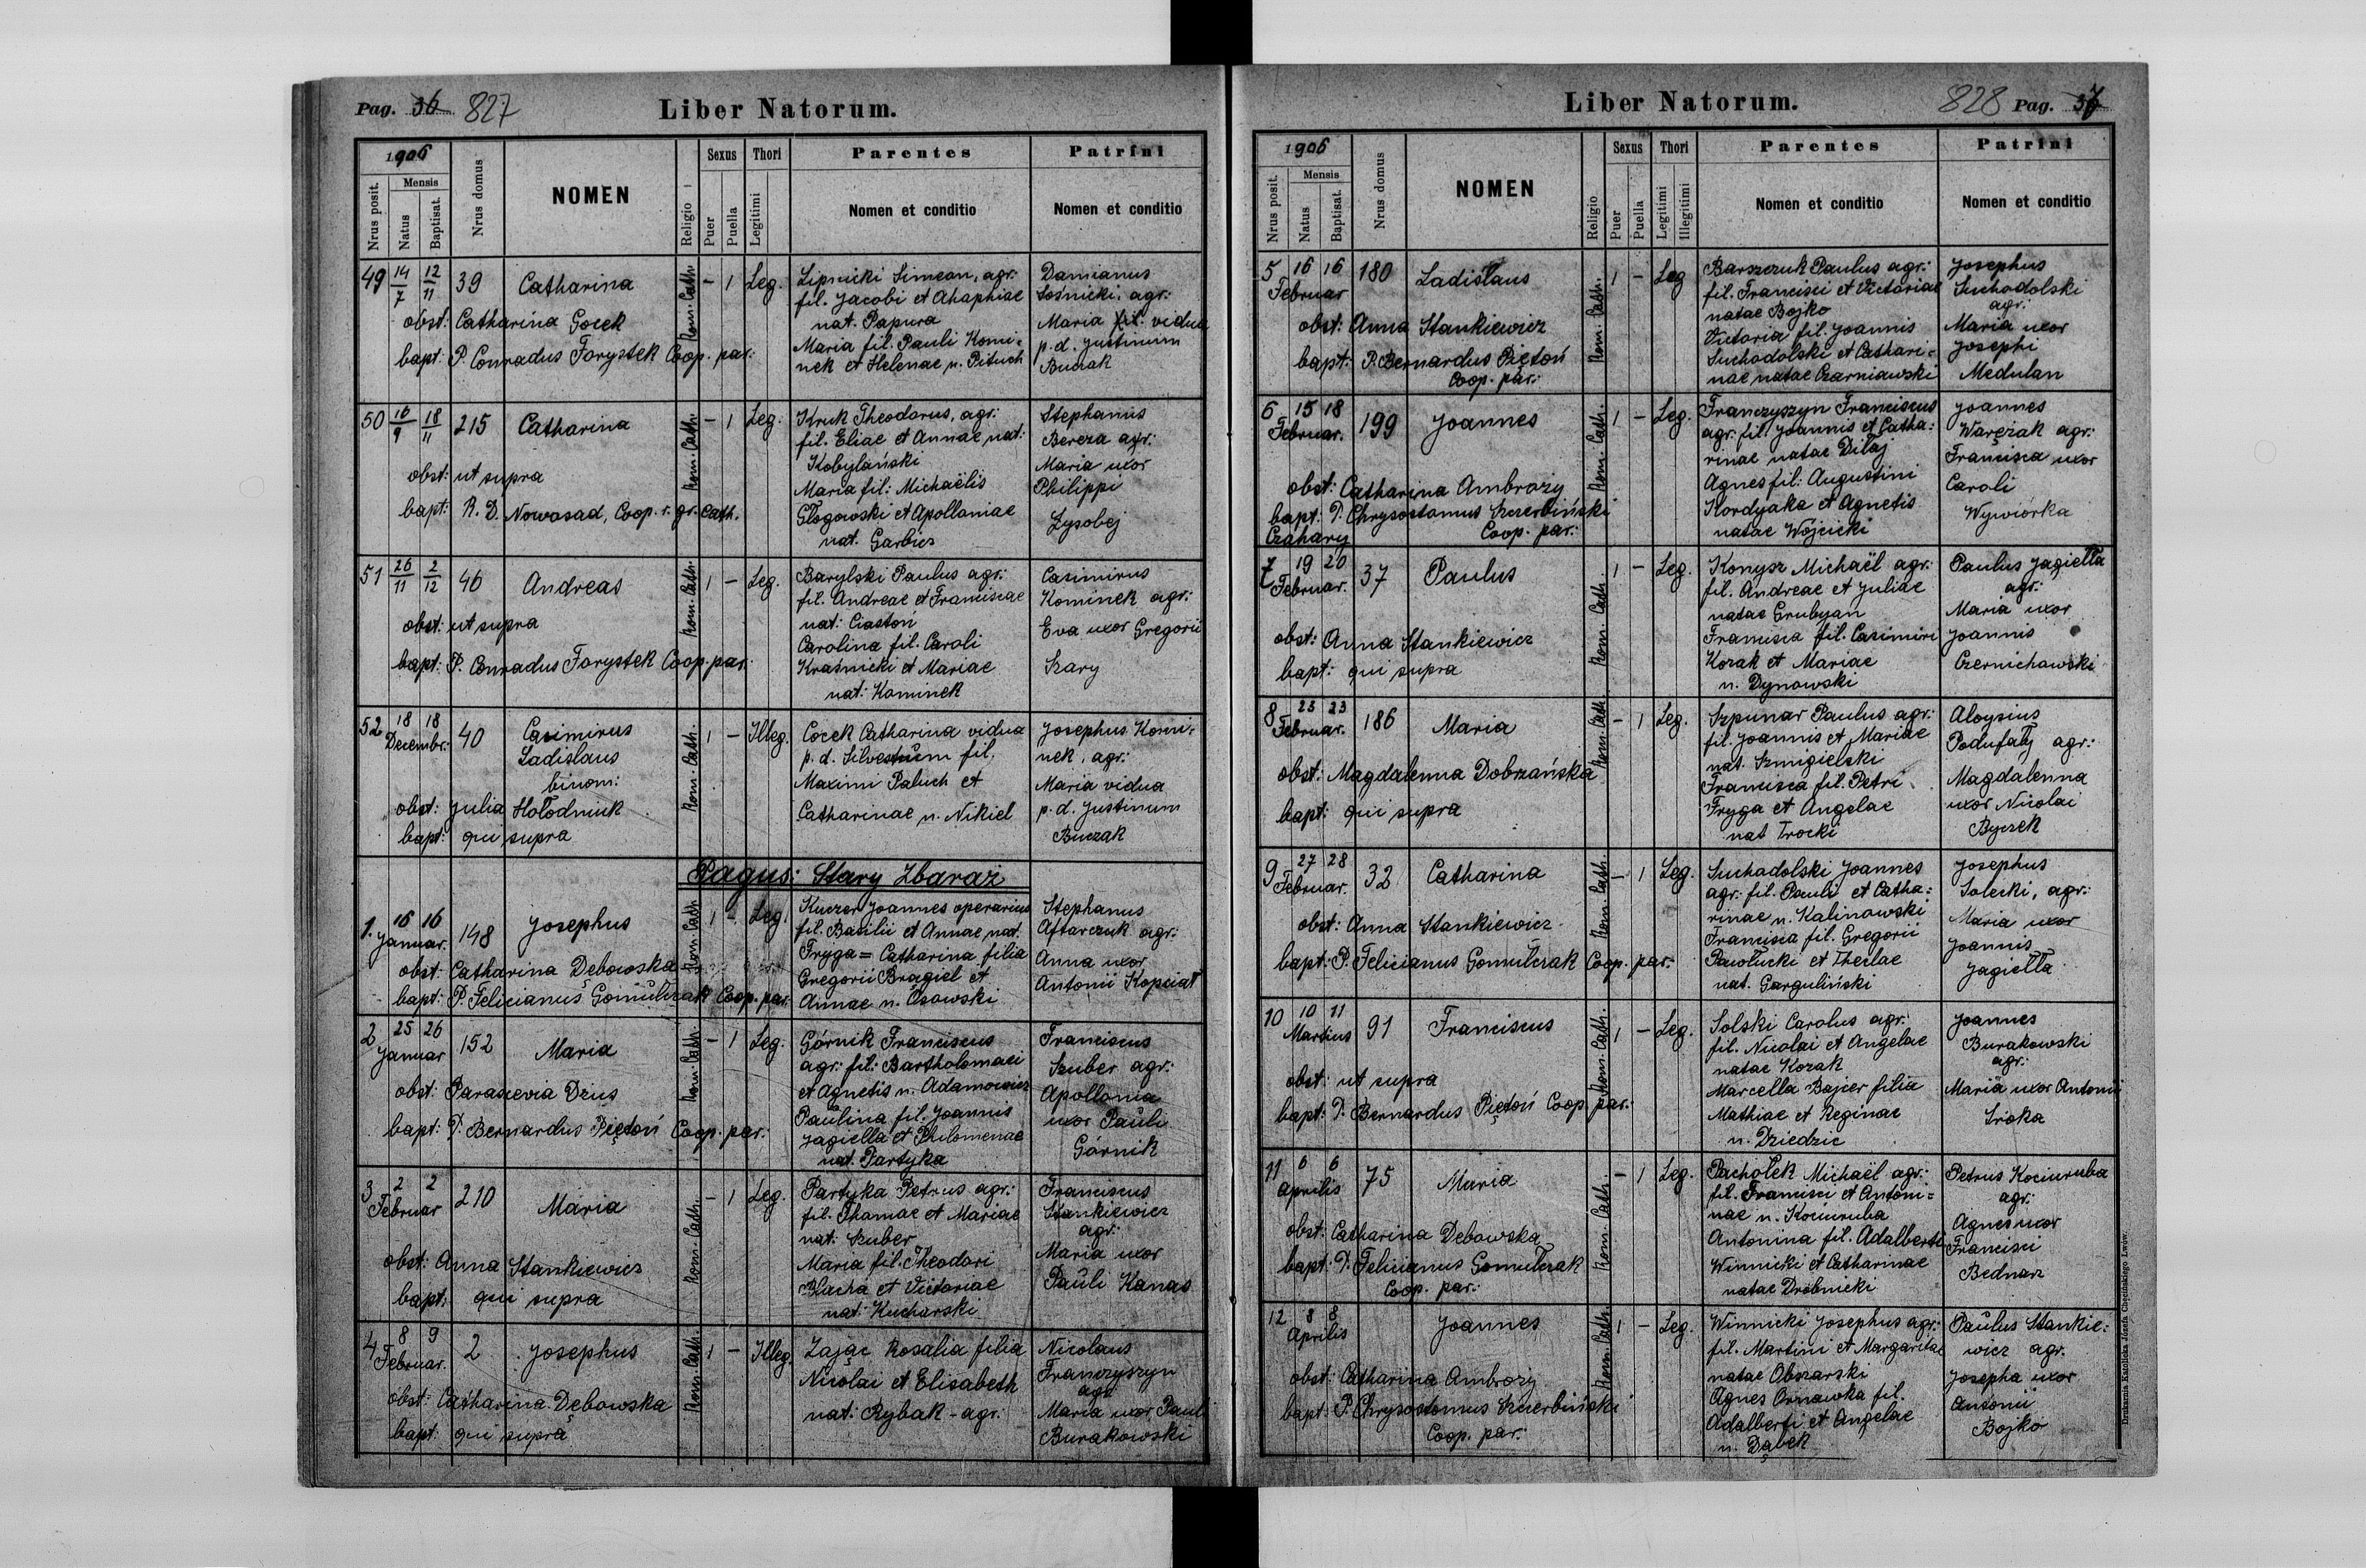 Pag. 36 827
Liber Natorum.
1906
Nrus posit.
Mensis
Natus
Baptisat.
Nrus domus
NOMEN
Religio
Sexus
Puer
Puella
Thori
Legitimi
Parentes
Nomen et conditio
Patrini
Nomen et conditio
49 14/7 12/11 39 Catharina
Rom. Cath. - 1 Leg.
obst: Catharina Gocek
bapt: P. Conradus Forystek Coop. par.
Lipnicki Simeon, agr:
fil. Jacobi et Ahaphiae
nat. Papura
Maria fil. Pauli Komi=
nek et Helenae n. Pituch
Damianus
Łośnicki, agr:
Maria fil. vidua
p. d. Justinum
Buczak
50 16/9 18/11 215 Catharina
Rom. Cath. - 1 Leg.
obst: ut supra
bapt: R. D. Nowosad, Coop. r. gr. Cath.
Kruk Theodorus, agr:
fil. Eliae et Annae nat:
Kobylański
Maria fil: Michaëlis
Głogowski et Apolloniae
nat. Garbicz
Stephanus
Bereza agr:
Maria uxor
Philippi
Łysobej
51 26/11 2/12 46 Andreas
Rom. Cath. 1 - Leg.
obst: ut supra
bapt: P. Conradus Forystek Coop. par.
Barylski Paulus agr:
fil. Andreae et Franciscae
nat: Ciastoń
Carolina fil. Caroli
Kraśnicki et Mariae
nat: Kominek
Casimirus
Kominek agr:
Eva uxor Gregorii
Szary
52 18 18 Decembr: 40 Casimirus
Ladislaus
binom:
Rom. Cath. 1 - Illeg.
obst: Julia Hołodniuk
bapt: qui supra
Cocek Catharina vidua
p. d. Silvestrum fil.
Maximi Paluch et
Catharinae n. Nikiel
Josephus Komi-
nek, agr:
Maria vidua
p. d. Justinum
Buczak
Pagus: Stary Zbaraż
1. 16 16 Januar. 148 Josephus
Rom. Cath. 1 - Leg.
obst: Catharina Dębowska
bapt: P. Felicianus Gomułczak Coop. par.
Kuczer Joannes operarius
fil. Basilii et Annae, nat.
Fryga = Catharina filia
Gregorii Bragiel et
Annae n. Osowski
Stephanus
Aftarczuk agr:
Anna uxor
Antonii Kopciał
2 25 26 Januar 152 Maria
Rom. Cath. - 1 Leg.
obst: Parascevia Dzius
bapt: P. Bernardus Piętoń Coop. par.
Górnik Franciscus
agr: fil: Bartholomaei
et Agnetis n. Adamowicz
Paulina fil. Joannis
Jagiella et Philomenae
nat. Partyka
Franciscus
Szuber agr:
Apollonia
uxor Pauli
Górnik
3 2 2 Februar 210 Maria
Rom. Cath. - 1 Leg.
obst: Anna Stankiewicz
bapt: qui supra
Partyka Petrus agr:
fil. Thomae et Mariae
nat: Szuber
Maria fil. Theodori
Blacha et Victoriae
nat: Kucharski
Franciscus
Stankiewicz
agr:
Maria uxor
Pauli Kanas
4 8 9 Februar. 2 Josephus
Rom. Cath. 1 - Illeg.
obst: Catharina Dębowska
bapt: qui supra
Zając Rosalia filia
Nicolai et Elisabeth
nat: Rybak - agr:
Nicolaus
Franczyszyn
agr.
Maria uxor Pauli
Burakowski
Liber Natorum.
828 Pag. 37
1906
Nrus posit.
Mensis
Natus
Baptisat.
Nrus domus
NOMEN
Religio
Sexus
Puer
Puella
Thori
Legitimi
Illegitimi
Parentes
Nomen et conditio
Patrini
Nomen et conditio
5 16 16 Februar 180 Ladislaus
Rom. Cath. 1 - Leg
obst: Anna Stankiewicz
bapt: P. Bernardus Piętoń
Coop. par:
Barszczuk Paulus agr:
fil. Francisci et Victoriae
natae Bojko
Victoria fil. Joannis
Suchodolski et Cathari=
nae natae Czarniawski
Josephus
Suchodolski
agr:
Maria uxor
Josephi
Medulan
6 15 18 Februar. 199 Joannes
Rom. Cath. 1 - Leg.
obst: Catharina Ambroży
bapt: P. Chrysostomus Szczerbiński
Czahary Coop. par:
Franczyszyn Franciscus
agr: fil. Joannis et Catha:
rinae natae Dilaj
Agnes fil: Augustini
Hordyaka et Agnetis
natae Wójcicki
Joannes
Waręzak agr:
Francisca uxor
Caroli
Wywiórka
7 19 20 Februar. 37 Paulus
Rom. Cath. 1 - Leg.
obst: Anna Stankiewicz
bapt: qui supra
Konysz Michaël agr:
fil. Andreae et Juliae
natae Grubyan
Francisca fil. Casimiri
Kozak et Mariae
n. Dynowski
Paulus Jagiełła
agr:
Maria uxor
Joannis
Czernichowski
8 23 23 Februar. 186 Maria
Rom. Cath. - 1 Leg.
obst: Magdalenna Dobrzańska
bapt: qui supra
Szpunar Paulus agr:
fil. Joannis et Mariae
nat. Szmigielski
Francisca fil. Petri
Fryga et Angelae
nat Trocki
Aloysius
Podufały agr:
Magdalenna
uxor Nicolai
Byczek
9 27 28 Februar. 32 Catharina
Rom. Cath. - 1 Leg.
obst: Anna Stankiewicz
bapt: P. Felicianus Gomułczak Coop. par.
Suchodolski Joannes
agr: fil. Pauli et Catha:
rinae n. Kalinowski
Francisca fil. Gregorii
Pawłucki et Theclae
nat. Garguliński
Josephus
Solecki, agr:
Maria uxor
Joannis
Jagiełła
10 10 11 Martius 91 Franciscus
Rom. Cath. 1 - Leg.
obst: ut supra
bapt: P. Bernardus Piętoń Coop par.
Solski Carolus agr:
fil. Nicolai et Angelae
natae Kozak
Marcella Bajcer filia
Mathiae et Reginae
n. Dziedzic
Joannes
Burakowski
agr:
Maria uxor Antonii
Sroka
11 6 6 Aprilis 75 Maria
Rom. Cath. - 1 Leg.
obst: Catharina Debowska
bapt: P. Felicianus Gomułczak
Coop. par:
Pachołek Michaël agr:
fil. Francisci et Antoni=
nae n. Kociuruba
Antonina fil. Adalberti
Winnicki et Catharinae
natae Drobnicki
Petrus Kociuruba
agr:
Agnes uxor
Francisci
Bednarz
12 8 8 Aprilis Joannes
Rom. Cath. 1 - Leg.
obst: Catharina Ambroży
bapt: P. Chrysostomus Szczerbiński
Coop. par:
Winnicki Josephus agr:
fil. Martini et Margaritae
natae Obszarski
Agnes Ornawka fil.
Adalberti et Angelae
n. Dąbek
Paulus Stankie:
wicz agr.
Josepha uxor
Antonii
Bojko
Drukarnia Katolicka Józefa Chęcińskiego Lwów.